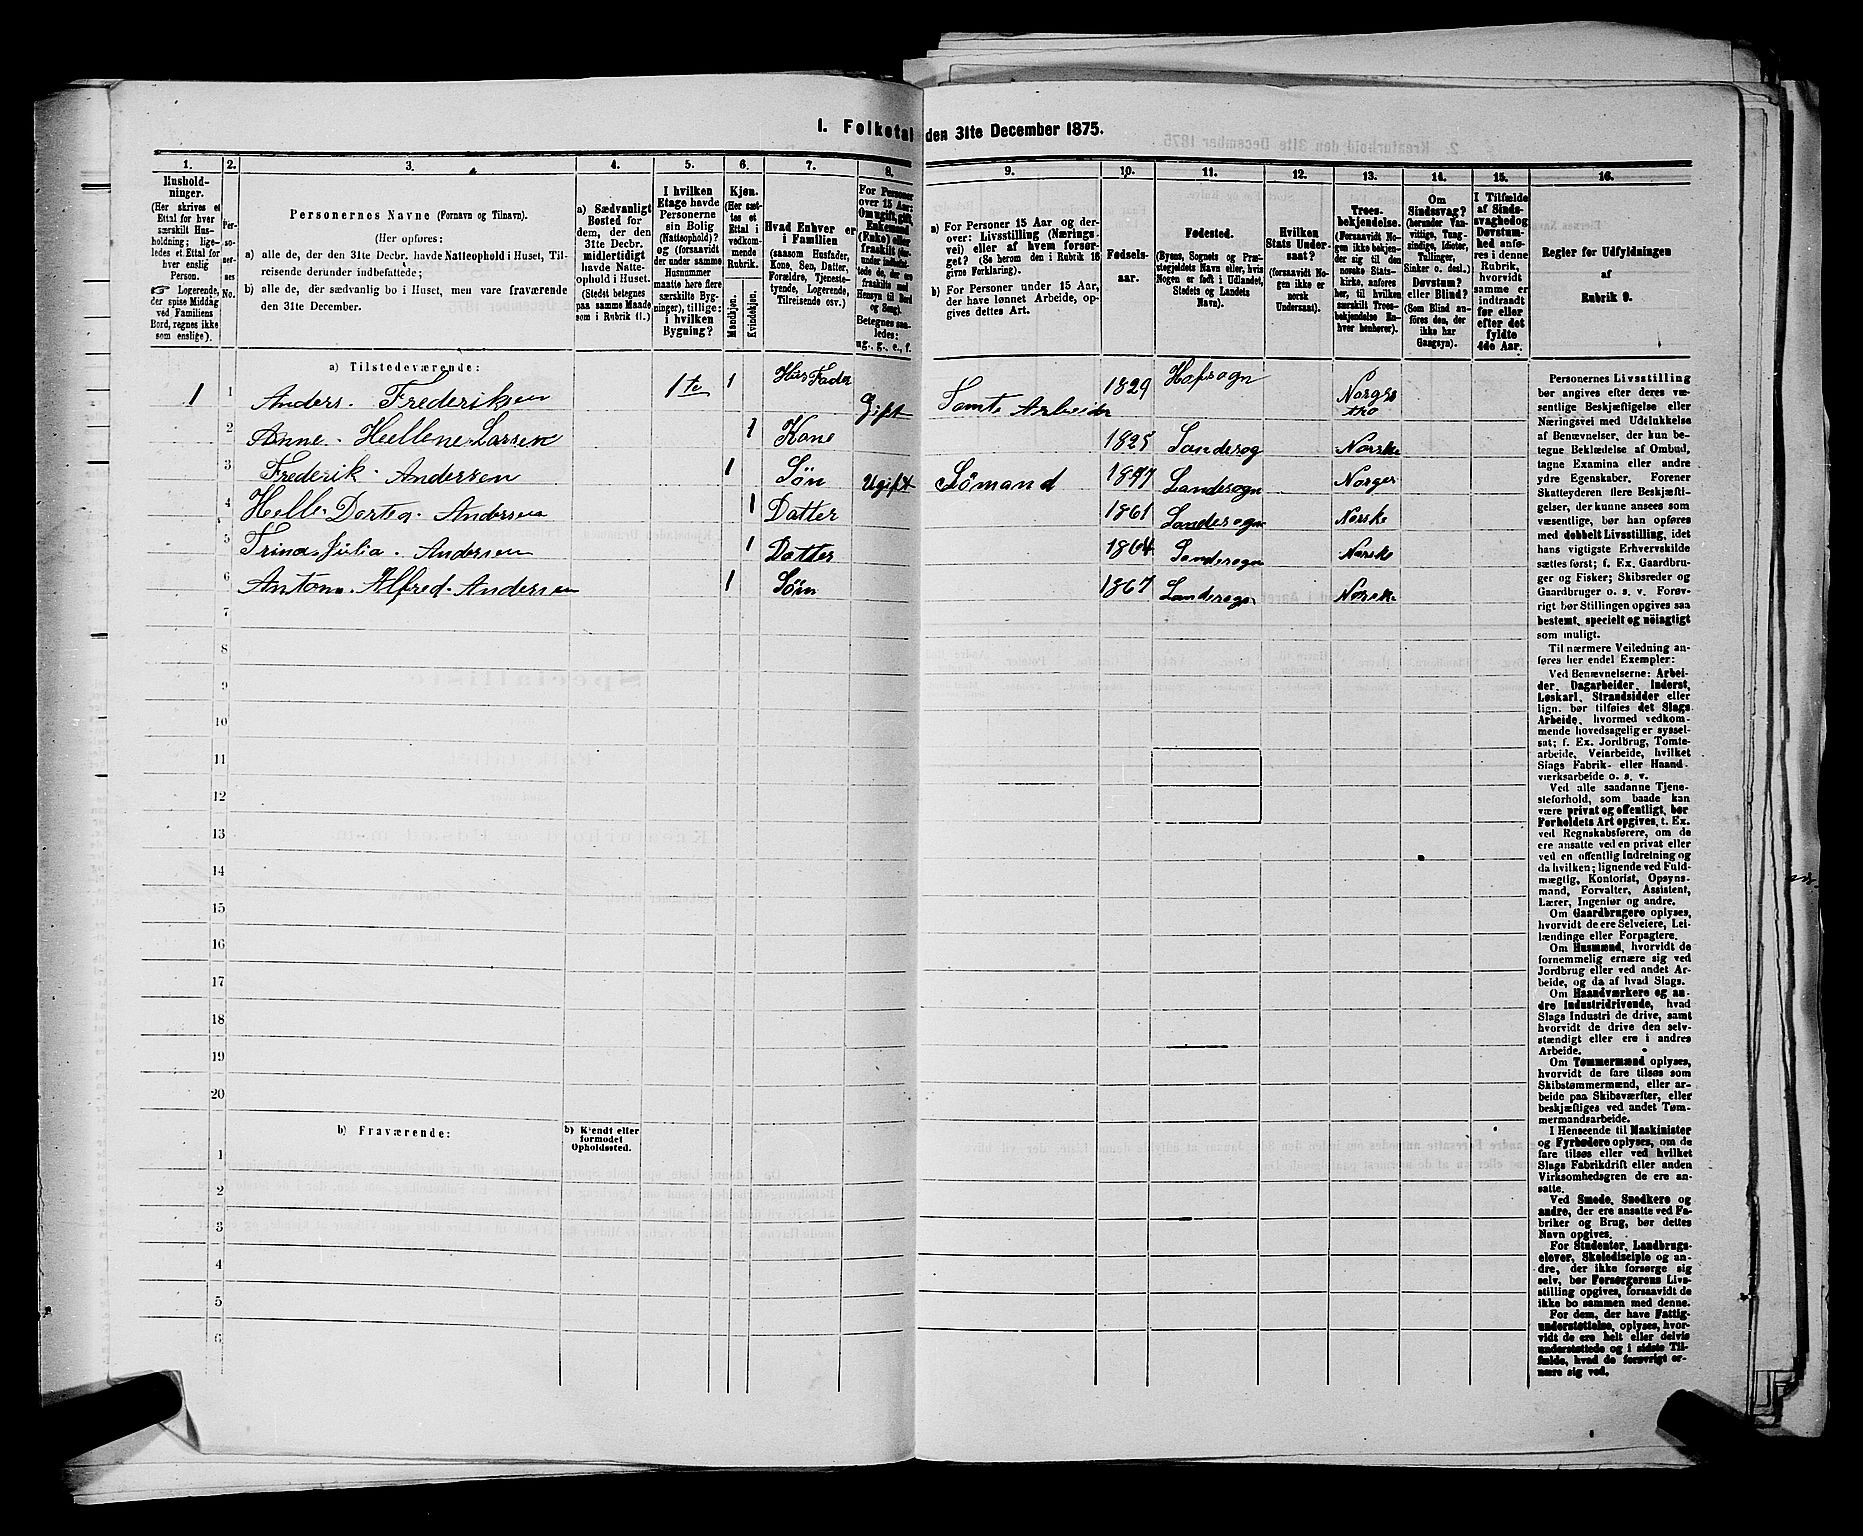 1. Folketal den 31te December 1875.
1.
Husholdninger.
(Her skrives et
Ettal for hver
særskilt Husholdning;
ligeledes et Ettal for
hver enslig
Person.
☞ Logerende,
der spise Middag
ved Familiens
Bord, regnes ikke
som enslige).
2.
Personernes
No.
3.
Personernes Navne (Fornavn og Tilnavn).
(Her opføres:
a) alle de, der den 31te Decbr. havde Natteophold i Huset, Tilreisende
derunder indbefattede;
b) alle de, der sædvanlig bo i Huset, men vare fraværende
den 31te December.
4.
a) Sædvanligt
Bosted for
dem, der den
31te Decbr.
midlertidigt
havde Natteophold
i Huset.
(Stedet betegnes
paa samme Maade
som i Rubrik 11.)
5.
I hvilken
Etage havde
Personerne
sin Bolig
(Natteophold)?
(forsaavidt
der under samme
Husnummer
maatte høre flere
særskilte Bygninger),
tillige:
i hvilken
Bygning?
6.
Kjøn.
(Her sættes
et
Ettal i
vedkommende
Rubrik.
Mandkjøn.
Kvindekjøn.
7.
Hvad Enhver er
i Familien
(saasom Husfader,
Kone, Søn, Datter,
Forældre, Tjenestetyende,
Logerende,
Tilreisende osv.)
8.
For Personer
over 15 Aar:
Om ugift, gift,
Enkemand
(Enke) eller
fraskilt
Betegnes saaledes:
ug., g., e., f.
9.
a) For Personer 15 Aar og derover:
Livsstilling (Næringsvei)
eller af hvem forsørget?
(Se herom den i Rubrik 16
givne Forklaring).
b) For Personer under 15 Aar,
der have lønnet Arbeide, opgives
dettes Art.
10.
Fødselsaar.
11.
Fødested.
(Byens, Sognets og Præstegjeldets
Navn eller, hvis
Nogen er født i Udlandet,
Stedets og Landets
Navn).
12.
Hvilken
Stats Undersaat?
(forsaavidt Nogen
ikke er
norsk
Undersaat).
13.
Troesbekjendelse.
(Forsaavidt Nogen
ikke bekjender
sig til den
norske Statskirke,
anføres
her, til hvilken
særskilt Troesbekjendelse
Enhver
henhører).
14.
Om
Sindssvag?
(herunder Vanvittige,
Tungsindige,
Idioter,
Tullinger,
Sinker o. desl.)
Døvstum?
eller Blind?
(Som Blind anføres
den, der
ikke har
Gangsyn).
15.
I Tilfælde
af Sindssvaghed
og
Døvstumhed
anføres
i denne
Rubrik,
hvorvidt
samme er
indtraadt
før eller
efter det
fyldte
4de Aar.
16.
Regler for Udfyldningen
af
Rubrik 9.
a) Tilstedeværende:
1 1 Anders. Frederiksen 1te 1 Hus Fader Gift Tomte Arbeider 1829 Hafsogn
2 Anne. Hellene Larsen 1 Kone 1825 Landesog Norske
3 Frederik. Andersen 1 Søn Ugift Sömand Landesogn Norges
4 Helle. Dortea. Andersen 1 Datter 1861 Landesogn Norske
5 Trina Julia. Andersen 1 Datter 1864 Landesogn Norske
6 Anton. Alfred. Andersen 1 Søn 1867 Landesogn Norske
7
8
9
10
11
12
13
14
15
16
17
18
19
20
b) Fraværende:
b) Kjendt eller
formodet
Opholdssted.
1
2
3
4
5
6
Personernes Livsstilling
bør angives efter deres væsentlige
Beskjæftigelse eller
Næringsvei med Udelukkelse
af Benævnelser, der kun betegne
Beklædelse af Ombud,
tagne Examina eller andre
ydre Egenskaber. Forener
Skatteyderen flere Beskjæftigelser,
der kunne ansees som
væsentlige, bør han opføres
med dobbelt Livsstilling, idet
hans vigtigste Erhvervskilde
sættes først; f. Ex. Gaardbruger
og Fisker; Skibsreder og
Gaardbruger o. s. v. Forøvrigt
bør Stillingen opgives saa
bestemt, specielt og nøiagtigt
som muligt.
Til nærmere Veiledning anføres
her endel Exempler:
Ved Benævnelserne: Arbeider,
Dagarbeider, Inderst,
Løskarl, Strandsidder eller
lign. bør tilføies det Slags
Arbeide, hvormed vedkommende
hovedsagelig er sysselsat;
f. Ex. Jordbrug, Tomtearbeide,
Veiarbeide, hvilket
Slags Fabrik- eller Haandværksarbeide
o. s. v.
Ved alle saadanne Tjenesteforhold,
som baade kan
være privat og offentligt, bør
Forholdets Art opgives, t. Ex.
ved Regnskabsførere, om de
ere ansatte ved en privat eller
ved en offentlig Indretning og
da hvilken; lignende ved Fuldmægtig,
Kontorist, Opsynsmand,
Forvalter, Assistent,
Lærer, Ingeniør og andre.
Om Gaardbrugere oplyses,
hvorvidt de ere Selveiere, Leilændinge
eller Forpagtere.
Om Husmænd, hvorvidt de
fornemmelig ernære sig ved
Jordbrug eller ved andet Arbeide,
og da af hvad Slags.
Om Haandværkere og andre
Industridrivende, hvad
Slags Industri de drive, samt
hvorvidt de drive den selvstændigt
eller ere i andres
Arbeide.
Om Tømmermænd oplyses,
hvorvidt de fare tilsøs som
Skibstømmermænd, eller arbeide
paa Skibsværfter, eller
beskjæftiges ved andet Tømmermandsarbeide.
I Henseende til Maskinister
og Fyrbødere oplyses, om de
fare tilsøs eller ved hvilket
Slags Fabrikdrift eller anden
Virksomhedsgren de ere ansatte.
Ved Smede, Snedkere og
andre, der ere ansatte ved Fabriker
og Brug, bør dettes
Navn opgives.
For Studenter, Landbrugselever,
Skoledisciple og andre,
der ikke forsørge sig
selv, bør Forsørgerens Livsstilling
opgives, forsaavidt de
ikke bo sammen med denne.
For dem, der have Fattigunderstøttelse,
oplyses, hvorvidt
de ere helt eller delvis
understøttede og i sidste Tilfælde,
hvad de forøvrigt ernære
sig ved.